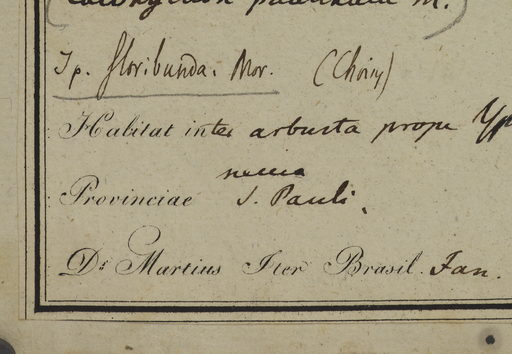 Ip. floribunda. Mor. (Choisy)
Habitat inter arbusta prope Yp
Provinciae S. Pauli.
Dr. Martius Iter Brasil. Jan.